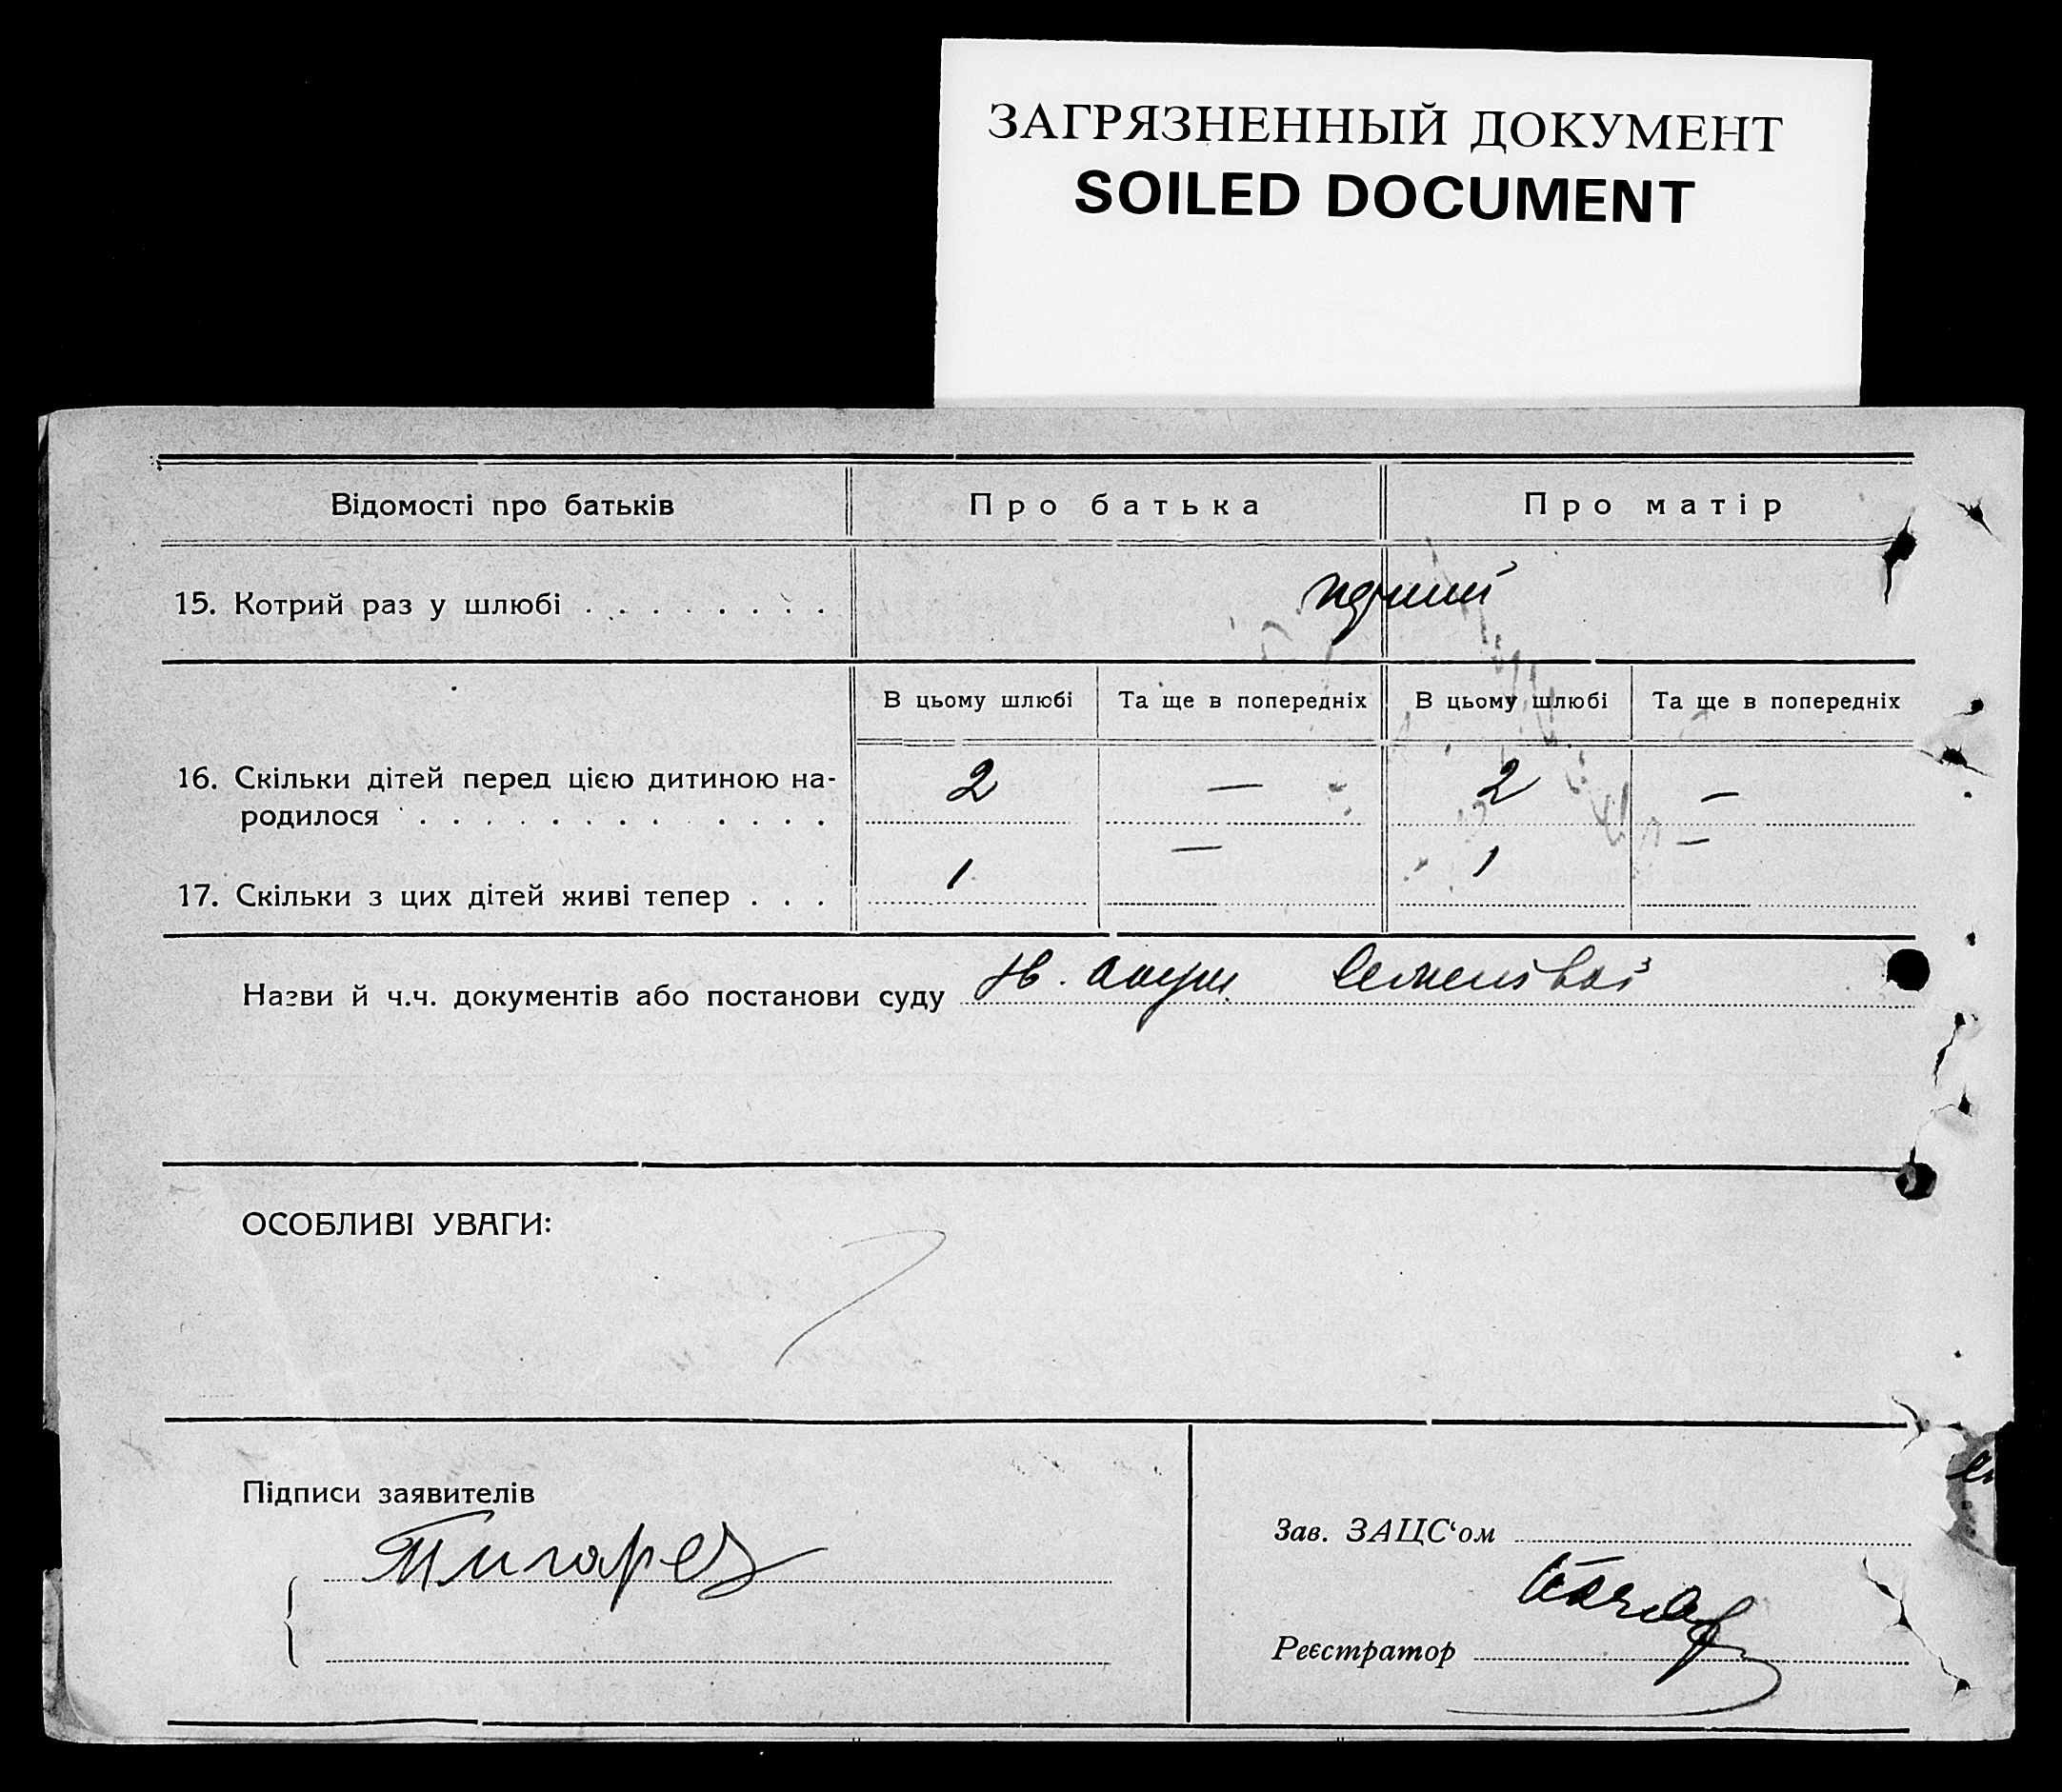 ЗАГРЯЗНЕННЫЙ ДОКУМЕНТ
SOILED DOCUMENT
Відомості про батьків Про батька Про матір
15. Котрий раз у шлюбі . . . . . . . .
В цьому шлюбі Та ще в попередніх В цьому шлюбі Та ще в попередніх
16. Скільки дітей перед цією дитиною на-
родилося . . . . . . . . . . . . 2 — 2 —
17. Скільки з цих дітей живі тепер . . . 1 — 1 —
Назви й ч.ч. документів або постанови суду
ОСОБЛИВІ УВАГИ:
Підписи заявителів
Зав. ЗАЦС‘ом
Реєстратор